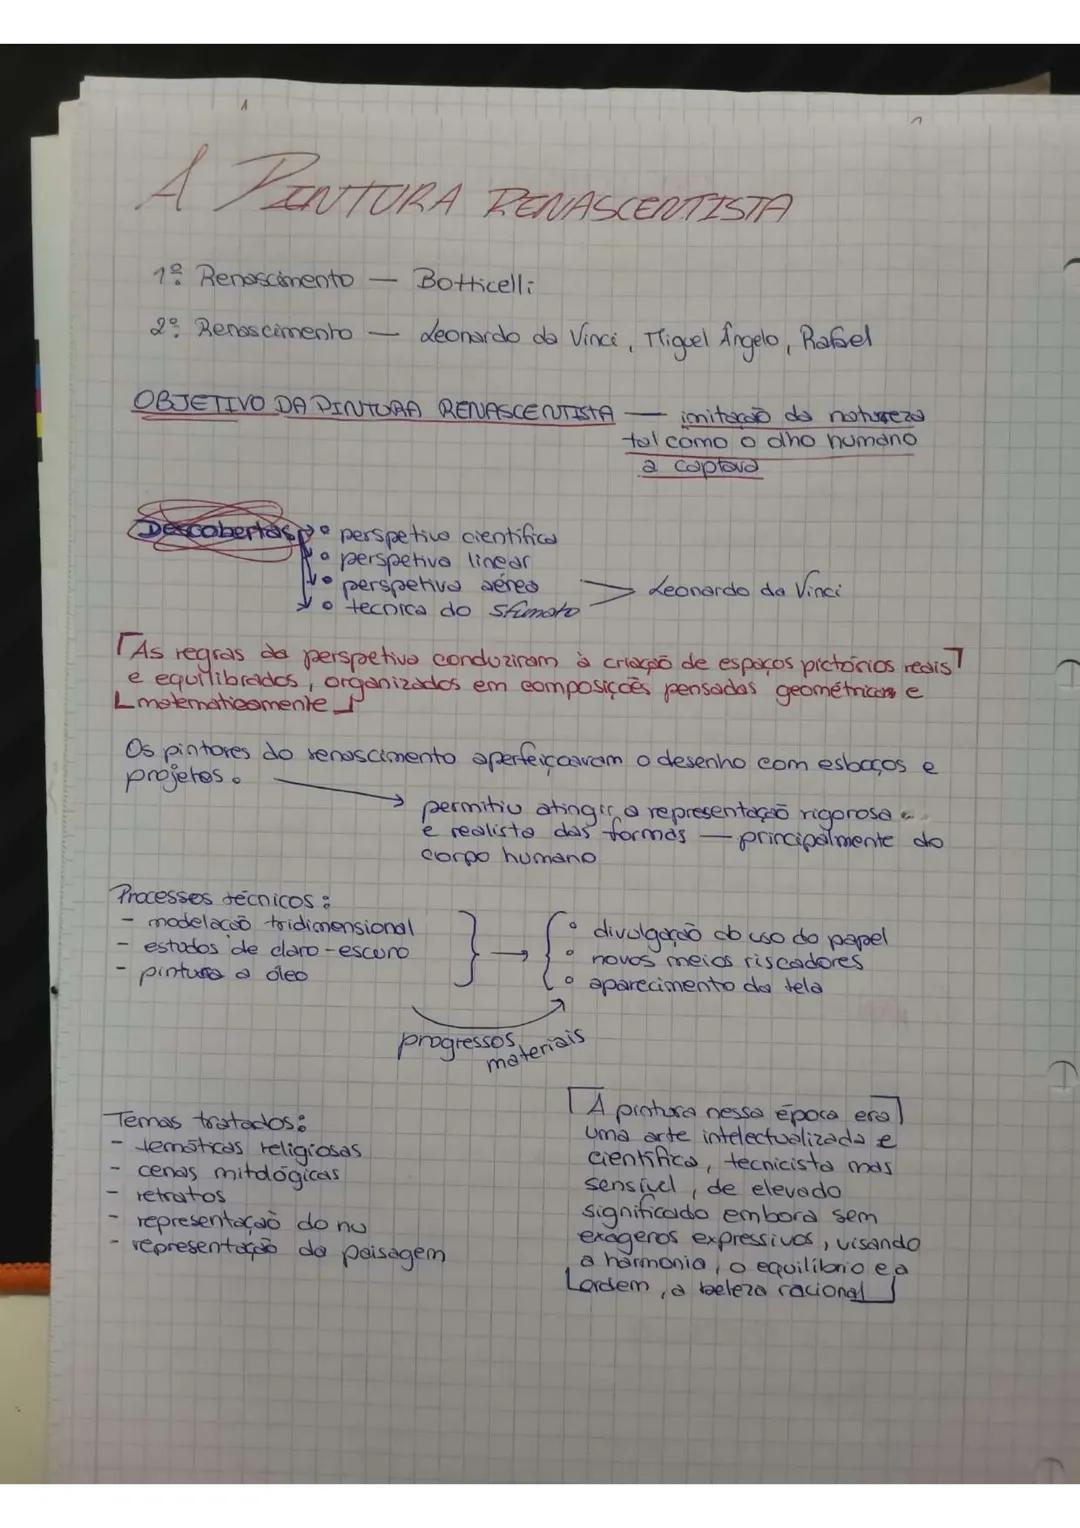 A PINTURA RENASCENTISTA
1º Renascimento — Botticelli
2º Renascimento — Leonardo da Vinci, Miguel Ângelo, Rafael
OBJETIVO DA PINTURA RENASCENTISTA — imitação da natureza
tal como o olho humano
a captava
Descobertas
• perspetiva científica
• perspetiva linear
• perspetiva aérea
• tecnica do sfumato
Leonardo da Vinci
As regras da perspetiva conduziram à criação de espaços pictóricos reais
e equilibrados, organizados em composições pensadas geométricas e
matematicamente
Os pintores do renascimento aperfeiçoavam o desenho com esboços e
projetos.
permitiu atingir a representação rigorosa
e realista das formas — principalmente do
corpo humano
Processos técnicos:
- modelação tridimensional
- estudos de claro-escuro
- pintura a óleo
• divulgação do uso do papel
• novos meios riscadores
• aparecimento da tela
progressos
materiais
Temas tratados:
- temáticas religiosas
- cenas mitológicas
- retratos
- representação do nu
- representação da paisagem
A pintura nessa época era
uma arte intelectualizada e
científica, tecnicista mas
sensível, de elevado
significado embora sem
exageros expressivos, visando
a harmonia, o equilíbrio e a
ordem, a beleza racional